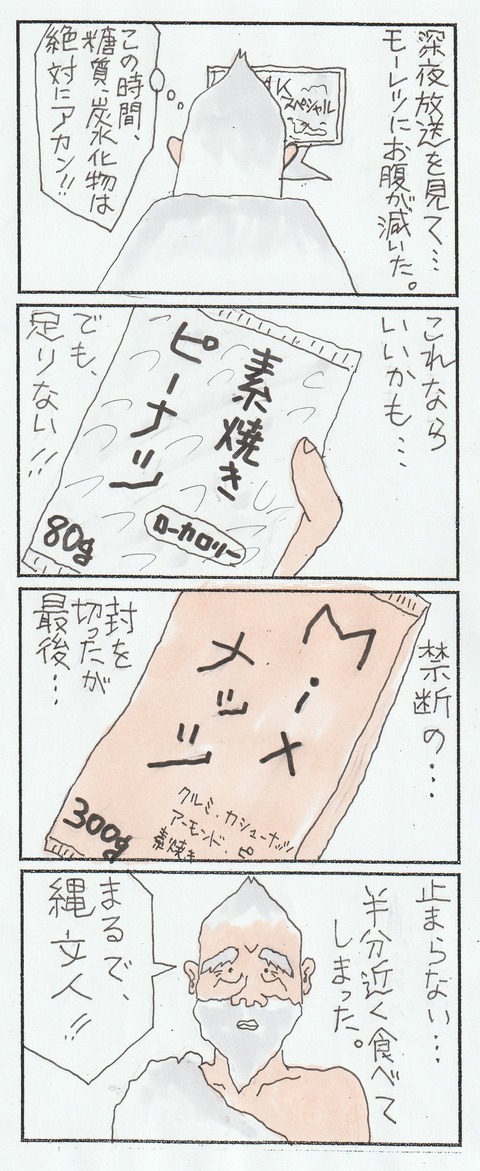 深夜放送を見て…
モーレツにお腹が減いた。
AK
スペシャル
この時間、
糖質、炭水化物は
絶対にアカン!!
これなら
いいかも…
素焼き
ピーナッツ
ローカロリー
80g
でも、
足りない!!
禁断の…
Mix
メッツ
クルミ・カシューナッツ
アーモンド・ピ
素焼き
300g
封を
切ったが
最後…
止まらない…
半分近く食べて
しまった。
まるで、
縄文人!!